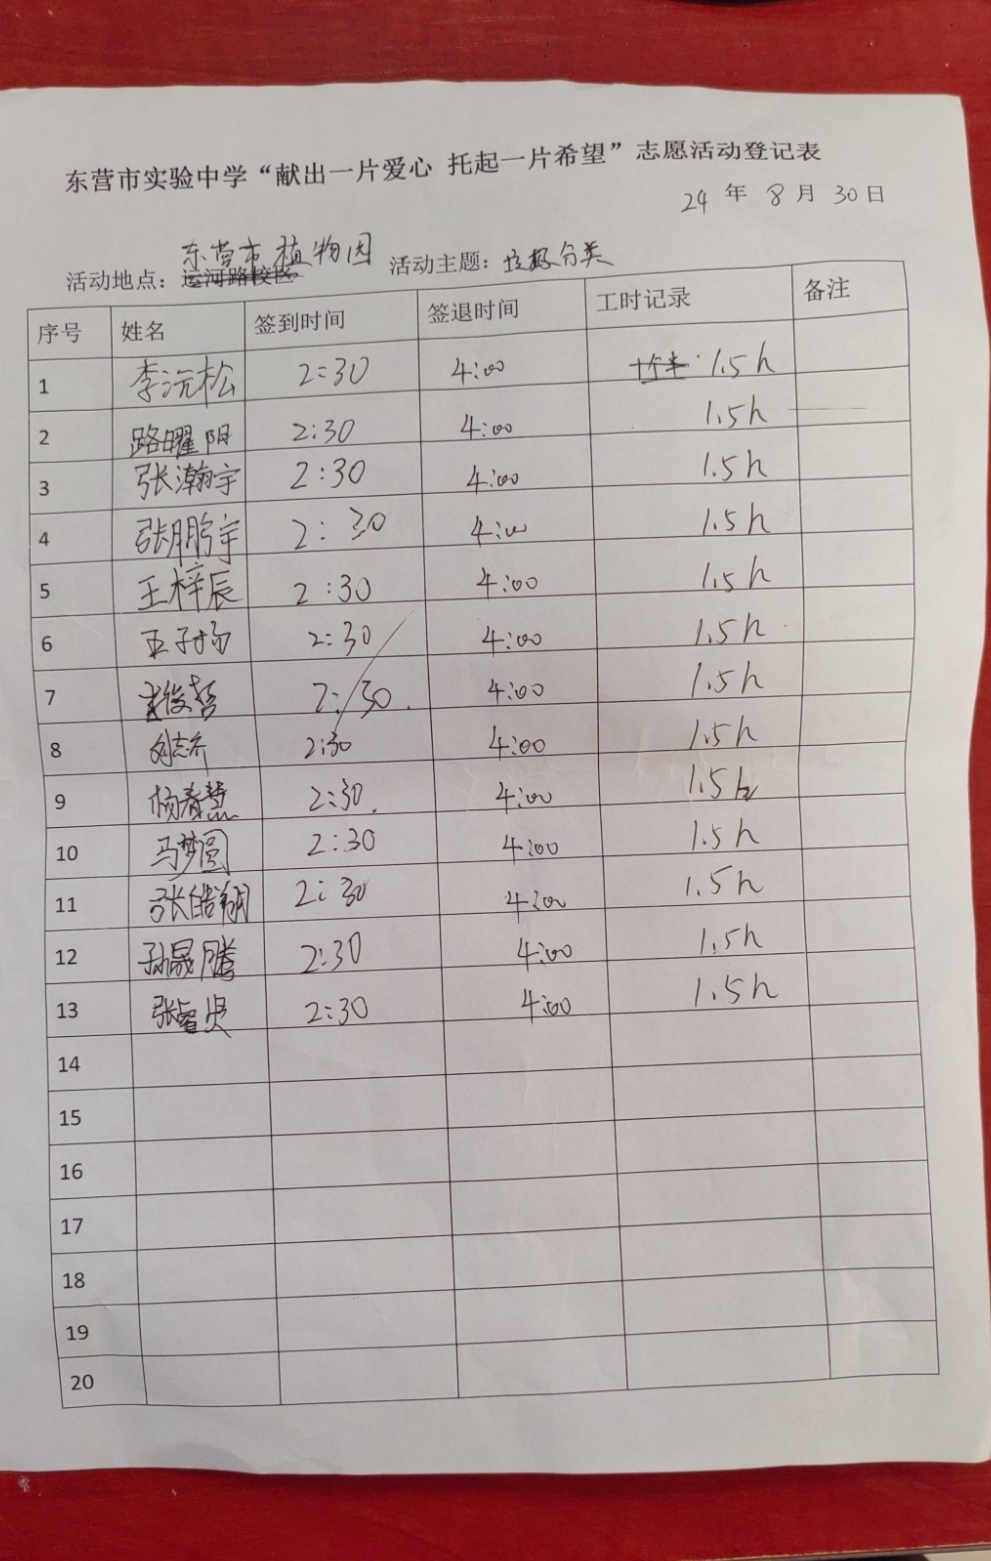 东营市实验中学“献出一片爱心 托起一片希望”志愿活动登记表
24 年 8 月 30 日
东营市植物园
活动地点：运河路校区 活动主题：垃圾分类
序号 姓名 签到时间 签退时间 工时记录 备注
1 李沅松 2:30 4:00 1.5h
2 路曜阳 2:30 4:00 1.5h
3 张瀚宇 2:30 4:00 1.5h
4 张鹏宇 2:30 4:00 1.5h
5 王梓辰 2:30 4:00 1.5h
6 王子扬 2:30 4:00 1.5h
7 2:30 4:00 1.5h
8 2:30 4:00 1.5h
9 杨春慧 2:30 4:00 1.5h
10 马梦圆 2:30 4:00 1.5h
11 张皓翔 2:30 4:00 1.5h
12 孙晟腾 2:30 4:00 1.5h
13 张睿贤 2:30 4:00 1.5h
14
15
16
17
18
19
20